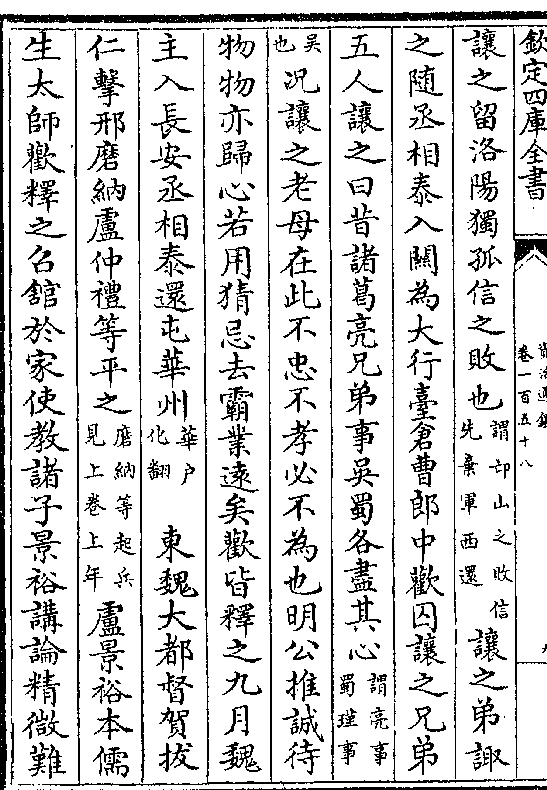 欽定四庫全書
資治通鑑
卷一百五十八
讓之留洛陽獨孤信之敗也謂邙山之敗信先棄軍西還讓之弟諏
之隨丞相泰入關為大行臺倉曹郎中歡囚讓之兄弟
五人讓之曰昔諸葛亮兄弟事吳蜀各盡其心謂亮事蜀瑾事
吳也况讓之老母在此不忠不孝必不為也明公推誠待
物物亦歸心若用猜忌去霸業遠矣歡皆釋之九月魏
主入長安丞相泰還屯華州華户化翻東魏大都督賀拔
仁擊邢磨納盧仲禮等平之磨納等起兵見上卷上年盧景裕本儒
生太師歡釋之召舘於家使教諸子景裕講論精微難